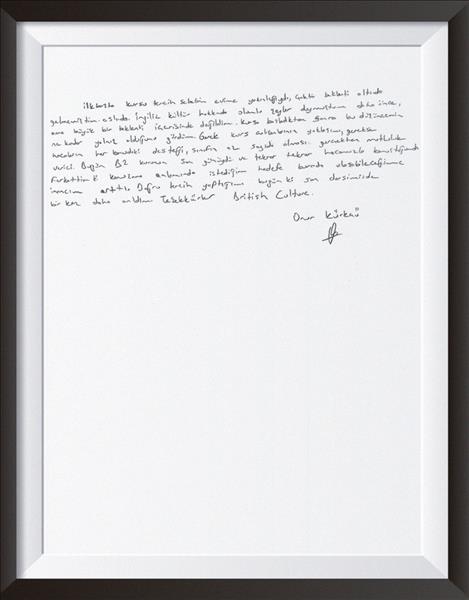 ilkbaşta kursu tercih sebebim evime yakınlığıydı, çokta beklenti altında
gelmemiştim aslında. İngiliz kültür hakkında olumlu şeyler duymuştum daha önce,
ama büyük bir beklenti içerisinde değildim. Kursa başladıktan sonra bu düşüncemin
ne kadar yanlış olduğunu gördüm. Gerek kurs çalışanlarının yaklaşımı, gerekse
hocaların her konudaki desteği, sınıfın az sayıda olması gerçekten mutluluk
verici. Bugün B2 kurunun son günüydü ve tekrar tekrar hocamızla konuştuğumda
Farkettim ki konuşma anlamında istediğim hedefe burada ulaşabileceğime
inancım arttı. Doğru tercih yaptığımı bugün ki son dersimizde
bir kez daha anladım. Teşekkürler British Culture.
Onur